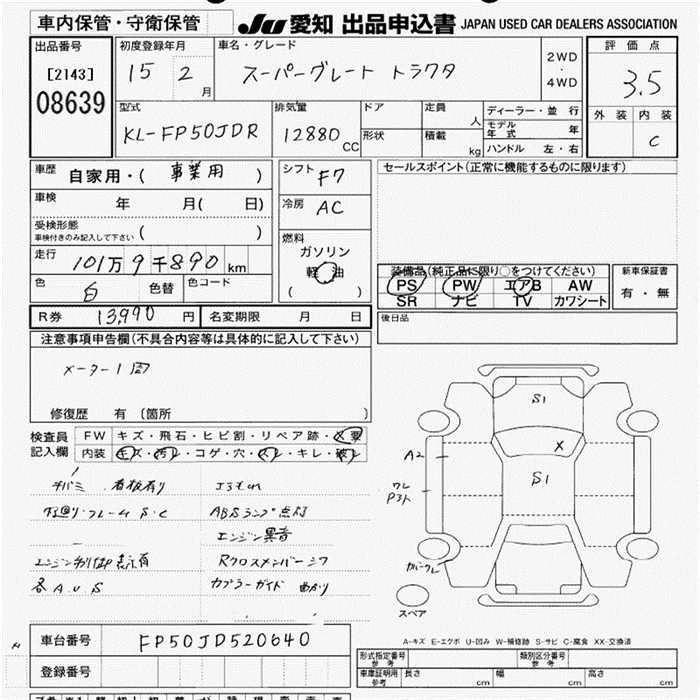 車内保管・守衛保管
JU 愛知 出品申込書 JAPAN USED CAR DEALERS ASSOCIATION
出品番号
[2143]
08639
初度登録年月
15 2 月
車名・グレード
スーパーグレート トラクタ
2WD
・
4WD
評価点
3.5
外装 内装
C
型式
KL-FP50JDR
排気量
12880 CC
ドア
形状
定員
人
積載
kg
ディーラー・並行
モデル年式 年
ハンドル 左・右
車歴
自家用・( 事業用 )
車検 年 月( 日)
受検形態
車検付きのみ記入して下さい ( )
走行 101万9千890km
色 白 色替 色コード
シフト F7
冷房 AC
燃料
ガソリン
軽油
( )
R券 13,990 円 名変期限 月 日
セールスポイント(正常に機能するものに限ります)
装備品(純正品に限り○をつけてください)
PS PW エアB AW
SR ナビ TV カワシート
新車保証書
有・無
後日品
注意事項申告欄(不具合内容等は具体的に記入して下さい)
メーター1周
修復歴 有 〔箇所 〕
検査員
記入欄
FW キズ・飛石・ヒビ割・リペア跡・X要
内装 キズ・汚レ・コゲ・穴・スレ・キレ・破レ
看板有り
ABSランプ点灯
エンジン異音
各 A.U.S
カプラーガイド 曲がり
S1
X
S1
A2
スペア
A-キズ E-エクボ U-凹み W-補修跡 S-サビ C-腐食 XX-交換済
車台番号 FP50JD520640
登録番号
形式指定番号
参考
類別区分番号
参考
車庫証明用
参考
長さ cm 幅 cm 高さ cm